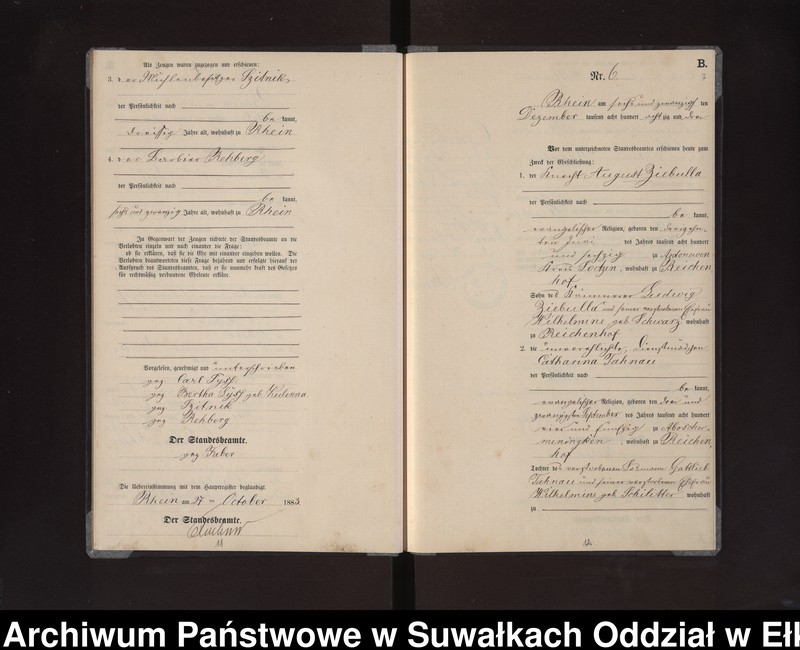 Als Zeugen waren zugezogen und erschienen:
3. der Mühlenbesitzer Szitnik,
der Persönlichkeit nach
be kannt,
dreissig Jahre alt, wohnhaft zu Rhein
4. der Barbier Rehberg
der Persönlichkeit nach
be kannt,
sechs und zwanzig Jahre alt, wohnhaft zu Rhein
In Gegenwart der Zeugen richtete der Standesbeamte an die
Verlobten einzeln und nach einander die Frage:
ob sie erklären, daß sie die Ehe mit einander eingehen wollen. Die
Verlobten beantworteten diese Frage bejahend und erfolgte hierauf der
Ausspruch des Standesbeamten, daß er sie nunmehr kraft des Gesetzes
für rechtmäßig verbundene Eheleute erkläre.
Vorgelesen, genehmigt und unterschrieben
gez. Carl
gez. Bertha geb.
gez. Szitnik
gez. Rehberg
Der Standesbeamte.
gez. Faber
Die Uebereinstimmung mit dem Hauptregister beglaubigt
Rhein am October 1883.
Der Standesbeamte.
11
B.
Nr. 6
Rhein am sechs und zwanzigsten
Dezember tausend acht hundert achtzig und drei
Vor dem unterzeichneten Standesbeamten erschienen heute zum
Zweck der Eheschließung:
1. der Knecht August Ziebulla
der Persönlichkeit nach
be kannt,
evangelischer Religion, geboren den dreizehn-
ten Juni des Jahres tausend acht hundert
und sechzig zu
Kreis Lötzen, wohnhaft zu Reichen
hof
Sohn des Ludwig
Ziebulla und seiner verstorbenen Ehefrau
Wilhelmine geb. Schwarz wohnhaft
zu Reichenhof
2. die unverehelichte, Dienstmädchen
Catharina Tahnau
der Persönlichkeit nach
be kannt,
evangelischer Religion, geboren den drei und
zwanzigsten September des Jahres tausend acht hundert
vier und fünfzig zu
wohnhaft zu Reichen
hof
Tochter des verstorbenen Losmann Gottlieb
Tahnau und seiner verstorbenen Ehefrau
Wilhelmine geb. wohnhaft
zu
12
Archiwum Państwowe w Suwałkach Oddział w Ełk